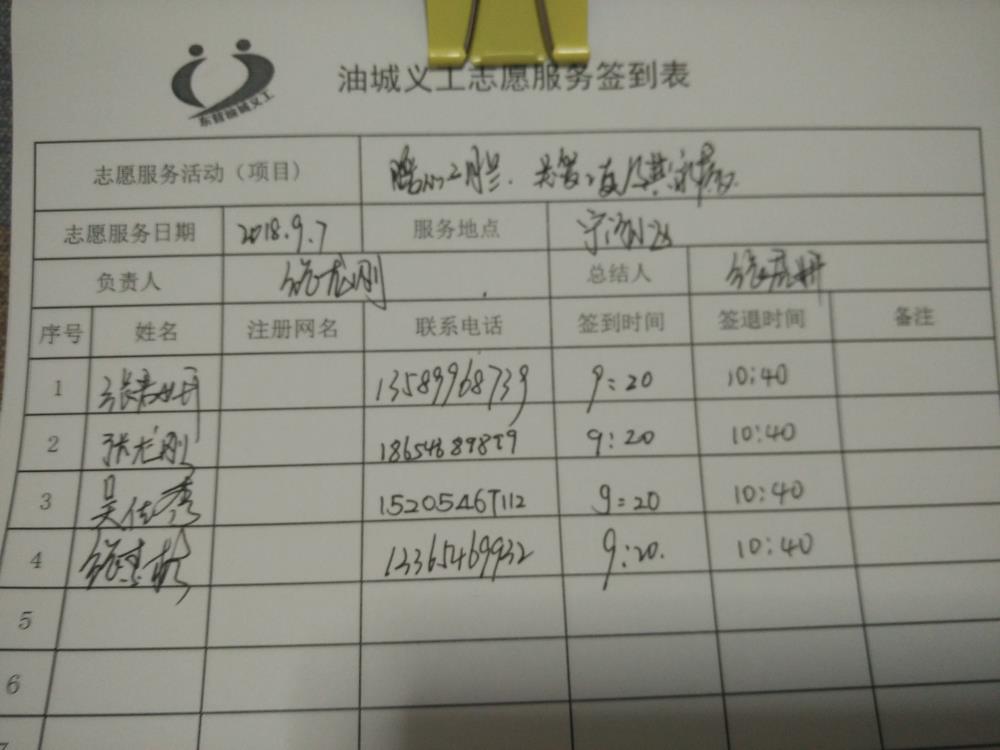 东营油城义工
油城义工志愿服务签到表
志愿服务活动（项目）
志愿服务日期 2018.9.7 服务地点
负责人 张龙刚 总结人
序号 姓名 注册网名 联系电话 签到时间 签退时间 备注
1 13589968739 9:20 10:40
2 张龙刚 18654689859 9:20 10:40
3 吴佳秀 15205467112 9:20 10:40
4 13365469932 9:20. 10:40
5
6
7